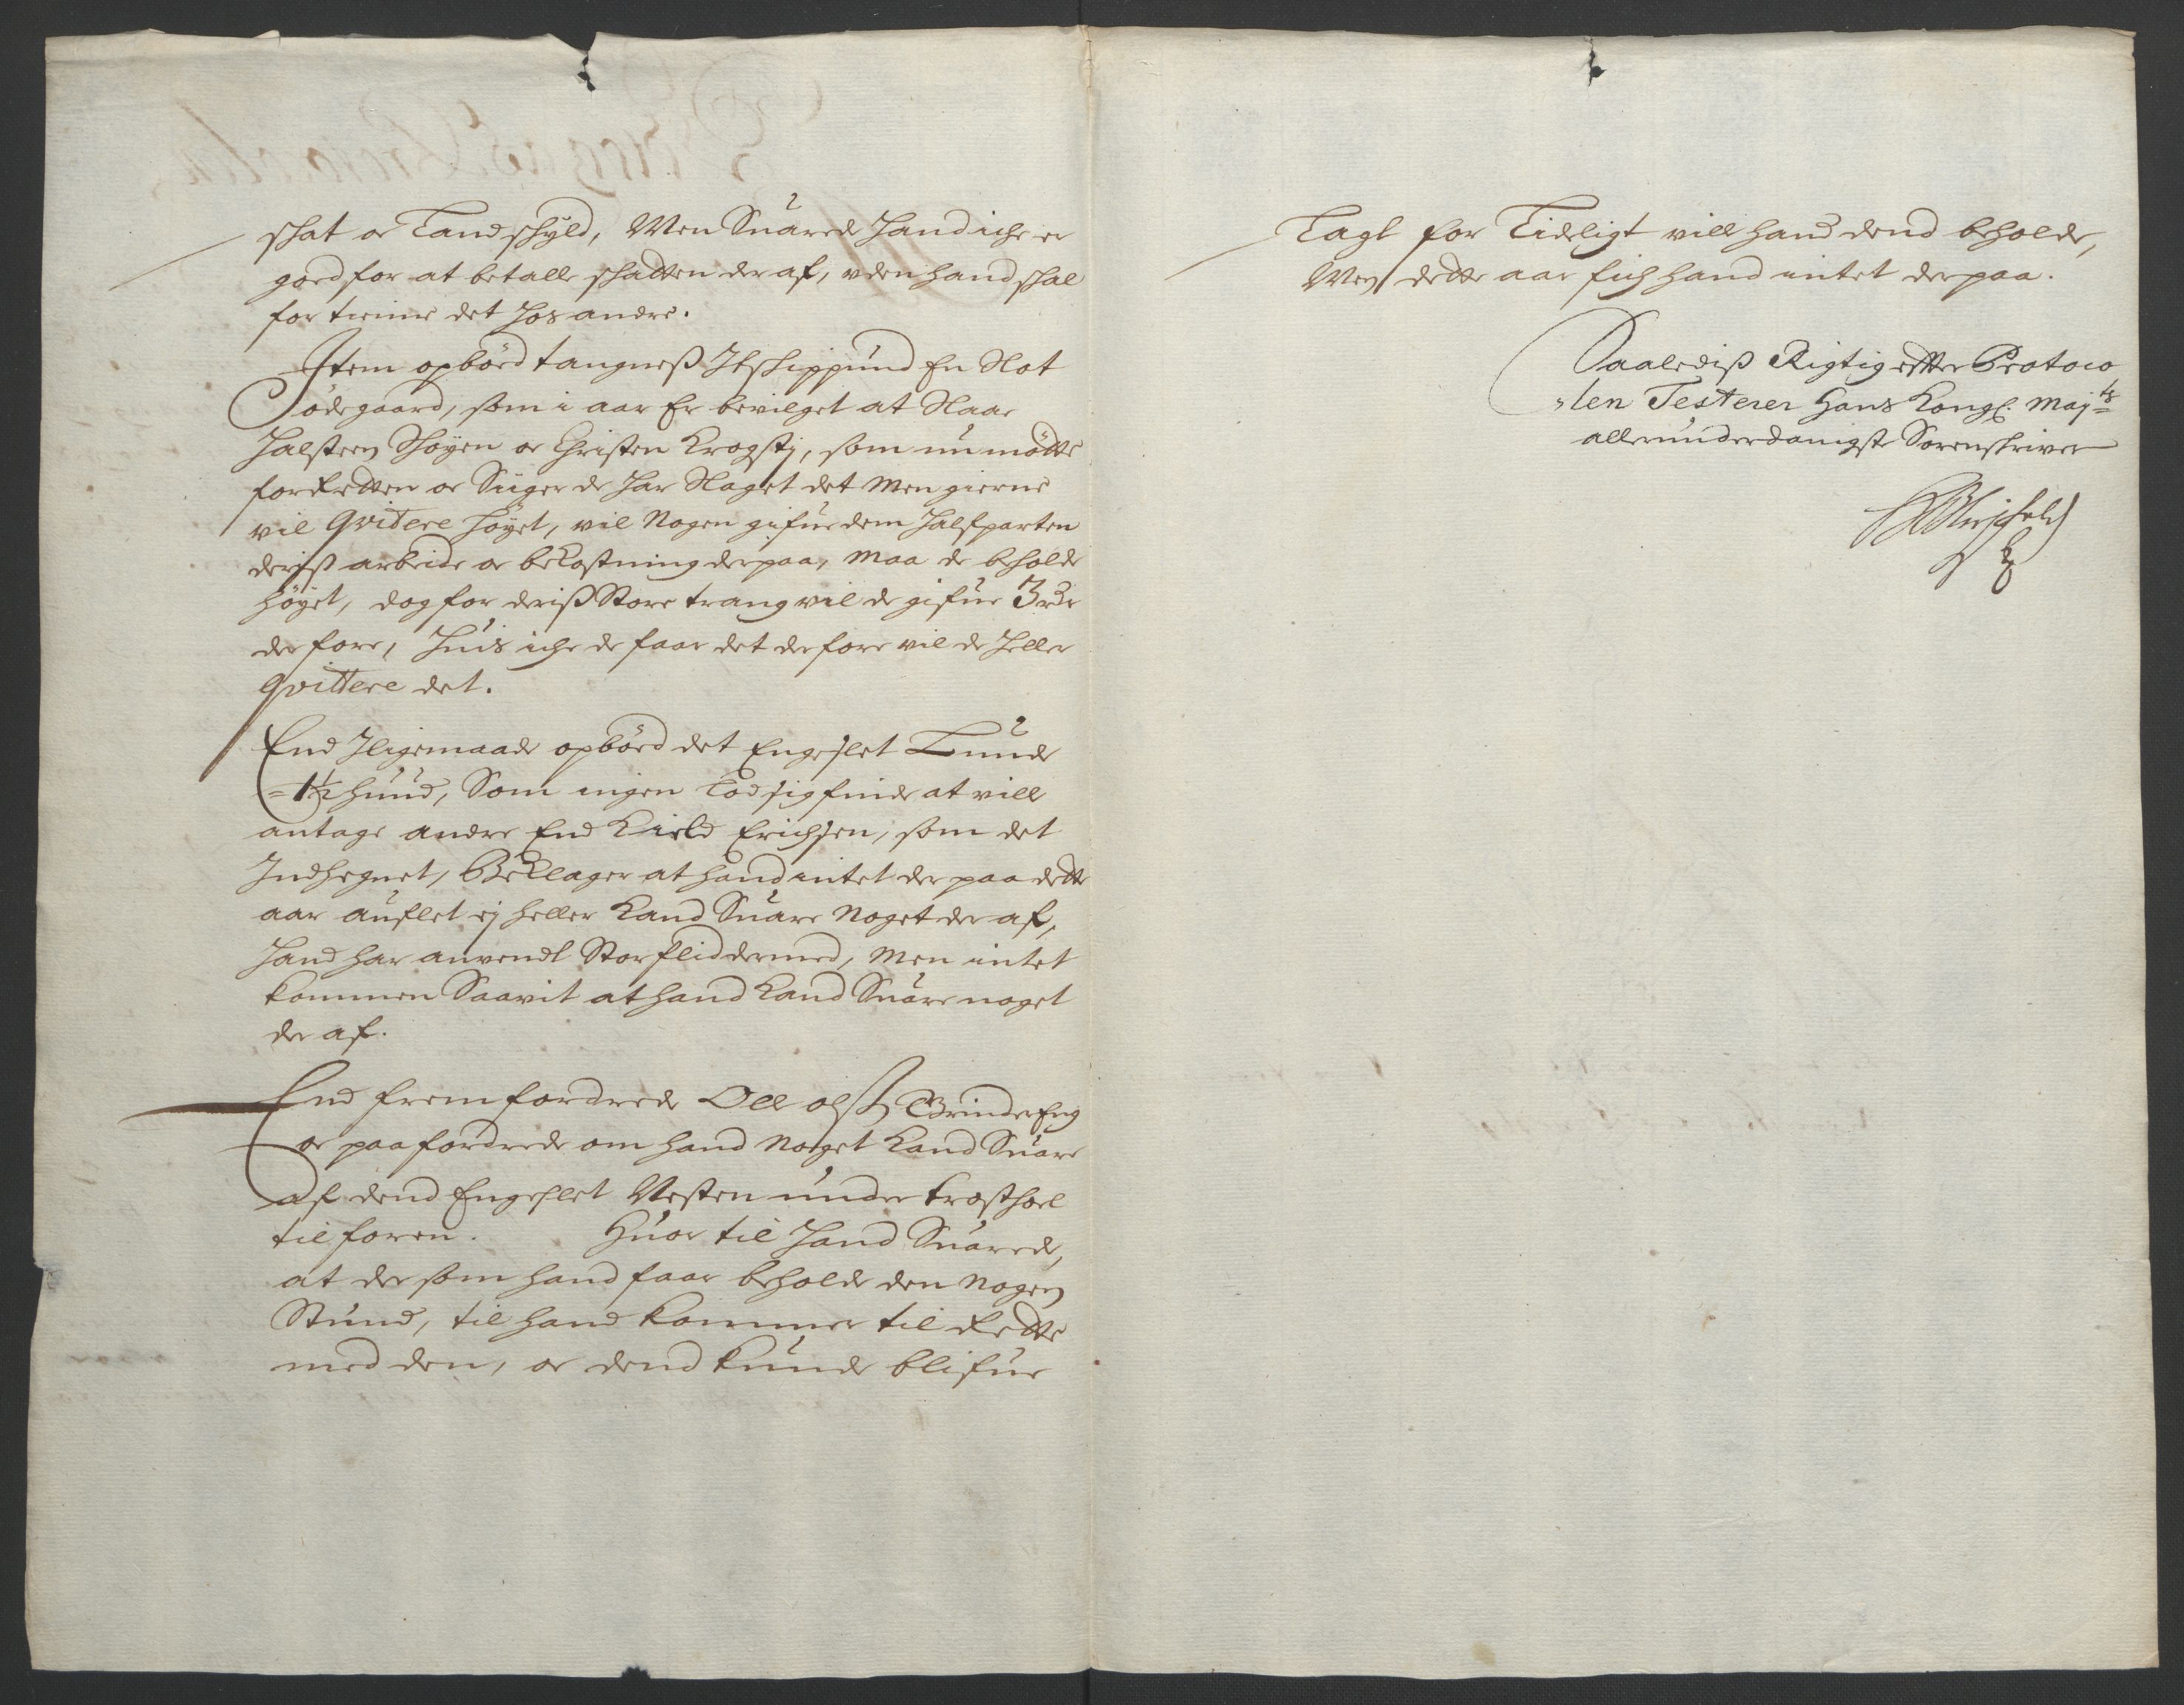 schat oc Landschyld, Men Suarede hand iche er
goed for at betalle schatten der af, uden hand schal
fortienne det hos andre.
Item opböd tangneß Itt schippund En Slot
Ödegaard, som i aar Er bevilget at Slaae
Halsteen Schöyen oc Christen Krogstj, som nu mödte
for Retten oc Siiger de har Slaget det Men gierne
vil Qvitere höyet, vil Nogen gifue dem halfparten
deriß arbeide oc bekostning derpaa, maa de beholde
höyet, dog for deriß Store trang vil de gifue 3 rdr
derfore, Huis iche de faar det derfore vil de heller
Qvittere det.
End Iligemaade opböd det Engeslet Lunde
= 1½ hund, Som ingen Lod sig finde at ville
antage andre End Kield Erichsen, som det
Indhegnet, Beklager at hand intet der paa dette
aar auflet ej heller kand Suare Noget der af,
hand har anvendt Stor flid dermed, Men intet
kommen Saavit at hand kand Suare noget
der af.
End fremfordrede Ole olß: Grinder Eng
oc paafordrede om hand Noget kand Suare
af dend Engeslet Vesten under
tilforen. Huor til hand Suarede,
at der som hand faar beholde den Nogen
Stund, til hand kommer til Rette
med den, oc dend kunde blifue
Lagt for Lideligt vill hand dend beholde,
Men dette aar fich hand intet der paa.
Saalediß Rigtig efter Protoco
„len Testerer Hans Kongl. Maj:ts
allerunderdanigste Sorenskriver